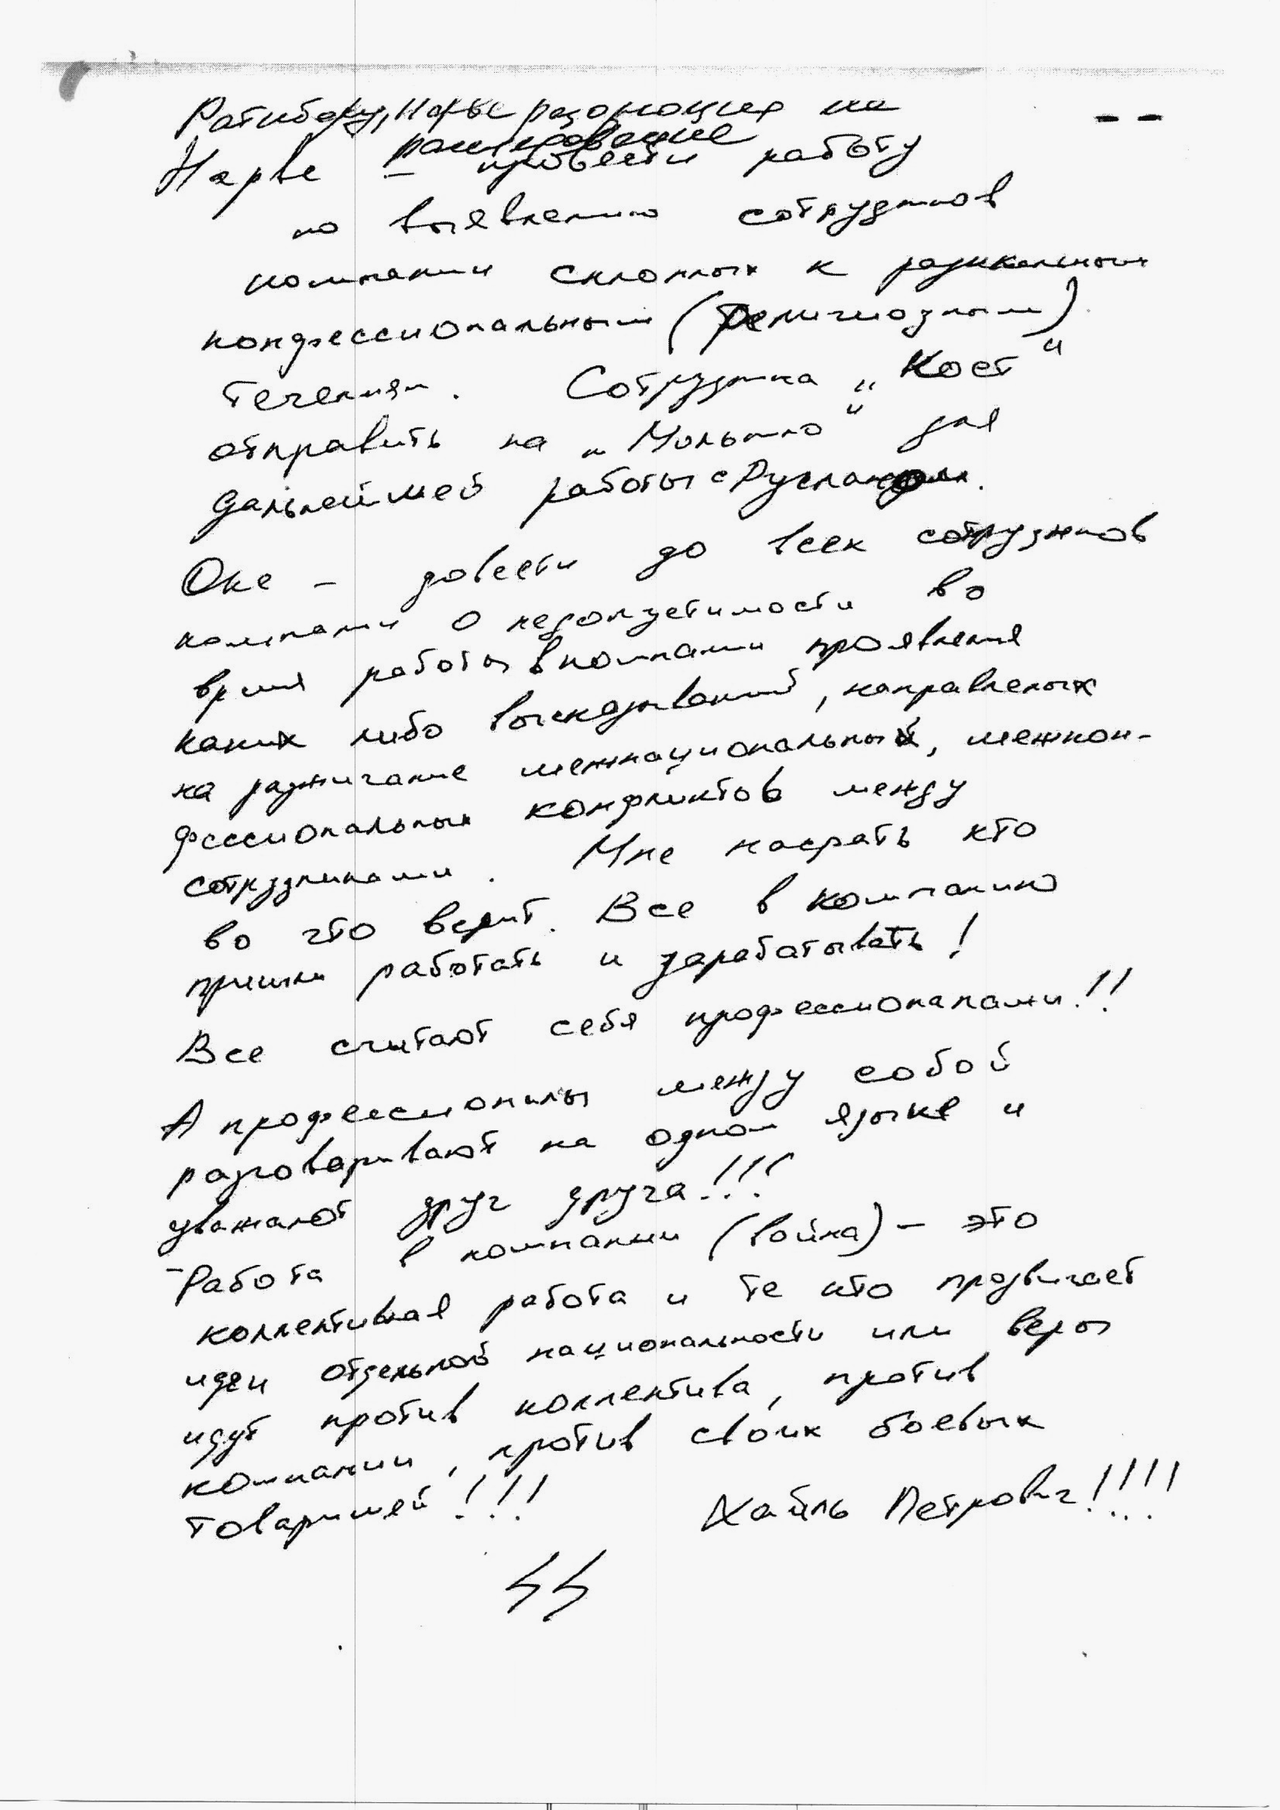 Ратибору, Нарве
расследование
Нарве – провести работу
по выявлению сотрудников
компании склонных к радикальным
конфессиональным (религиозным)
течениям. Сотрудника „Кост"
отправить на „Молькино" для
дальнейшей работы с Русланом.
Оке – довести до всех сотрудников
компании о недопустимости во
время работы в компании проявления
каких либо высказываний, направленых
на разжигание межнациональных, межкон-
фессиональных конфликтов между
сотрудниками. Мне насрать кто
во что верит. Все в компанию
пришли работать и зарабатывать!
Все считают себя профессионалами!!
А профессионалы между собой
разговаривают на одном языке и
уважают друг друга!!!
– Работа в компании (война) – это
коллективная работа и те кто продвигает
идеи отдельной национальности или веры
идут против коллектива, против
компании, против своих боевых
товарищей!!! Хайль Петрович!!!!